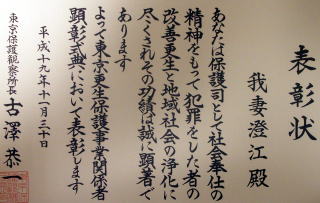 表彰状
我妻澄江殿
あなたは保護司として社会奉仕の
精神をもって犯罪をした者の
改善更生と地域社会の浄化に
尽くされその功績は誠に顕著で
あります
よって東京更生保護事業関係者
顕彰式典において表彰します
平成十九年十一月二十日
東京保護観察所長
古澤恭一